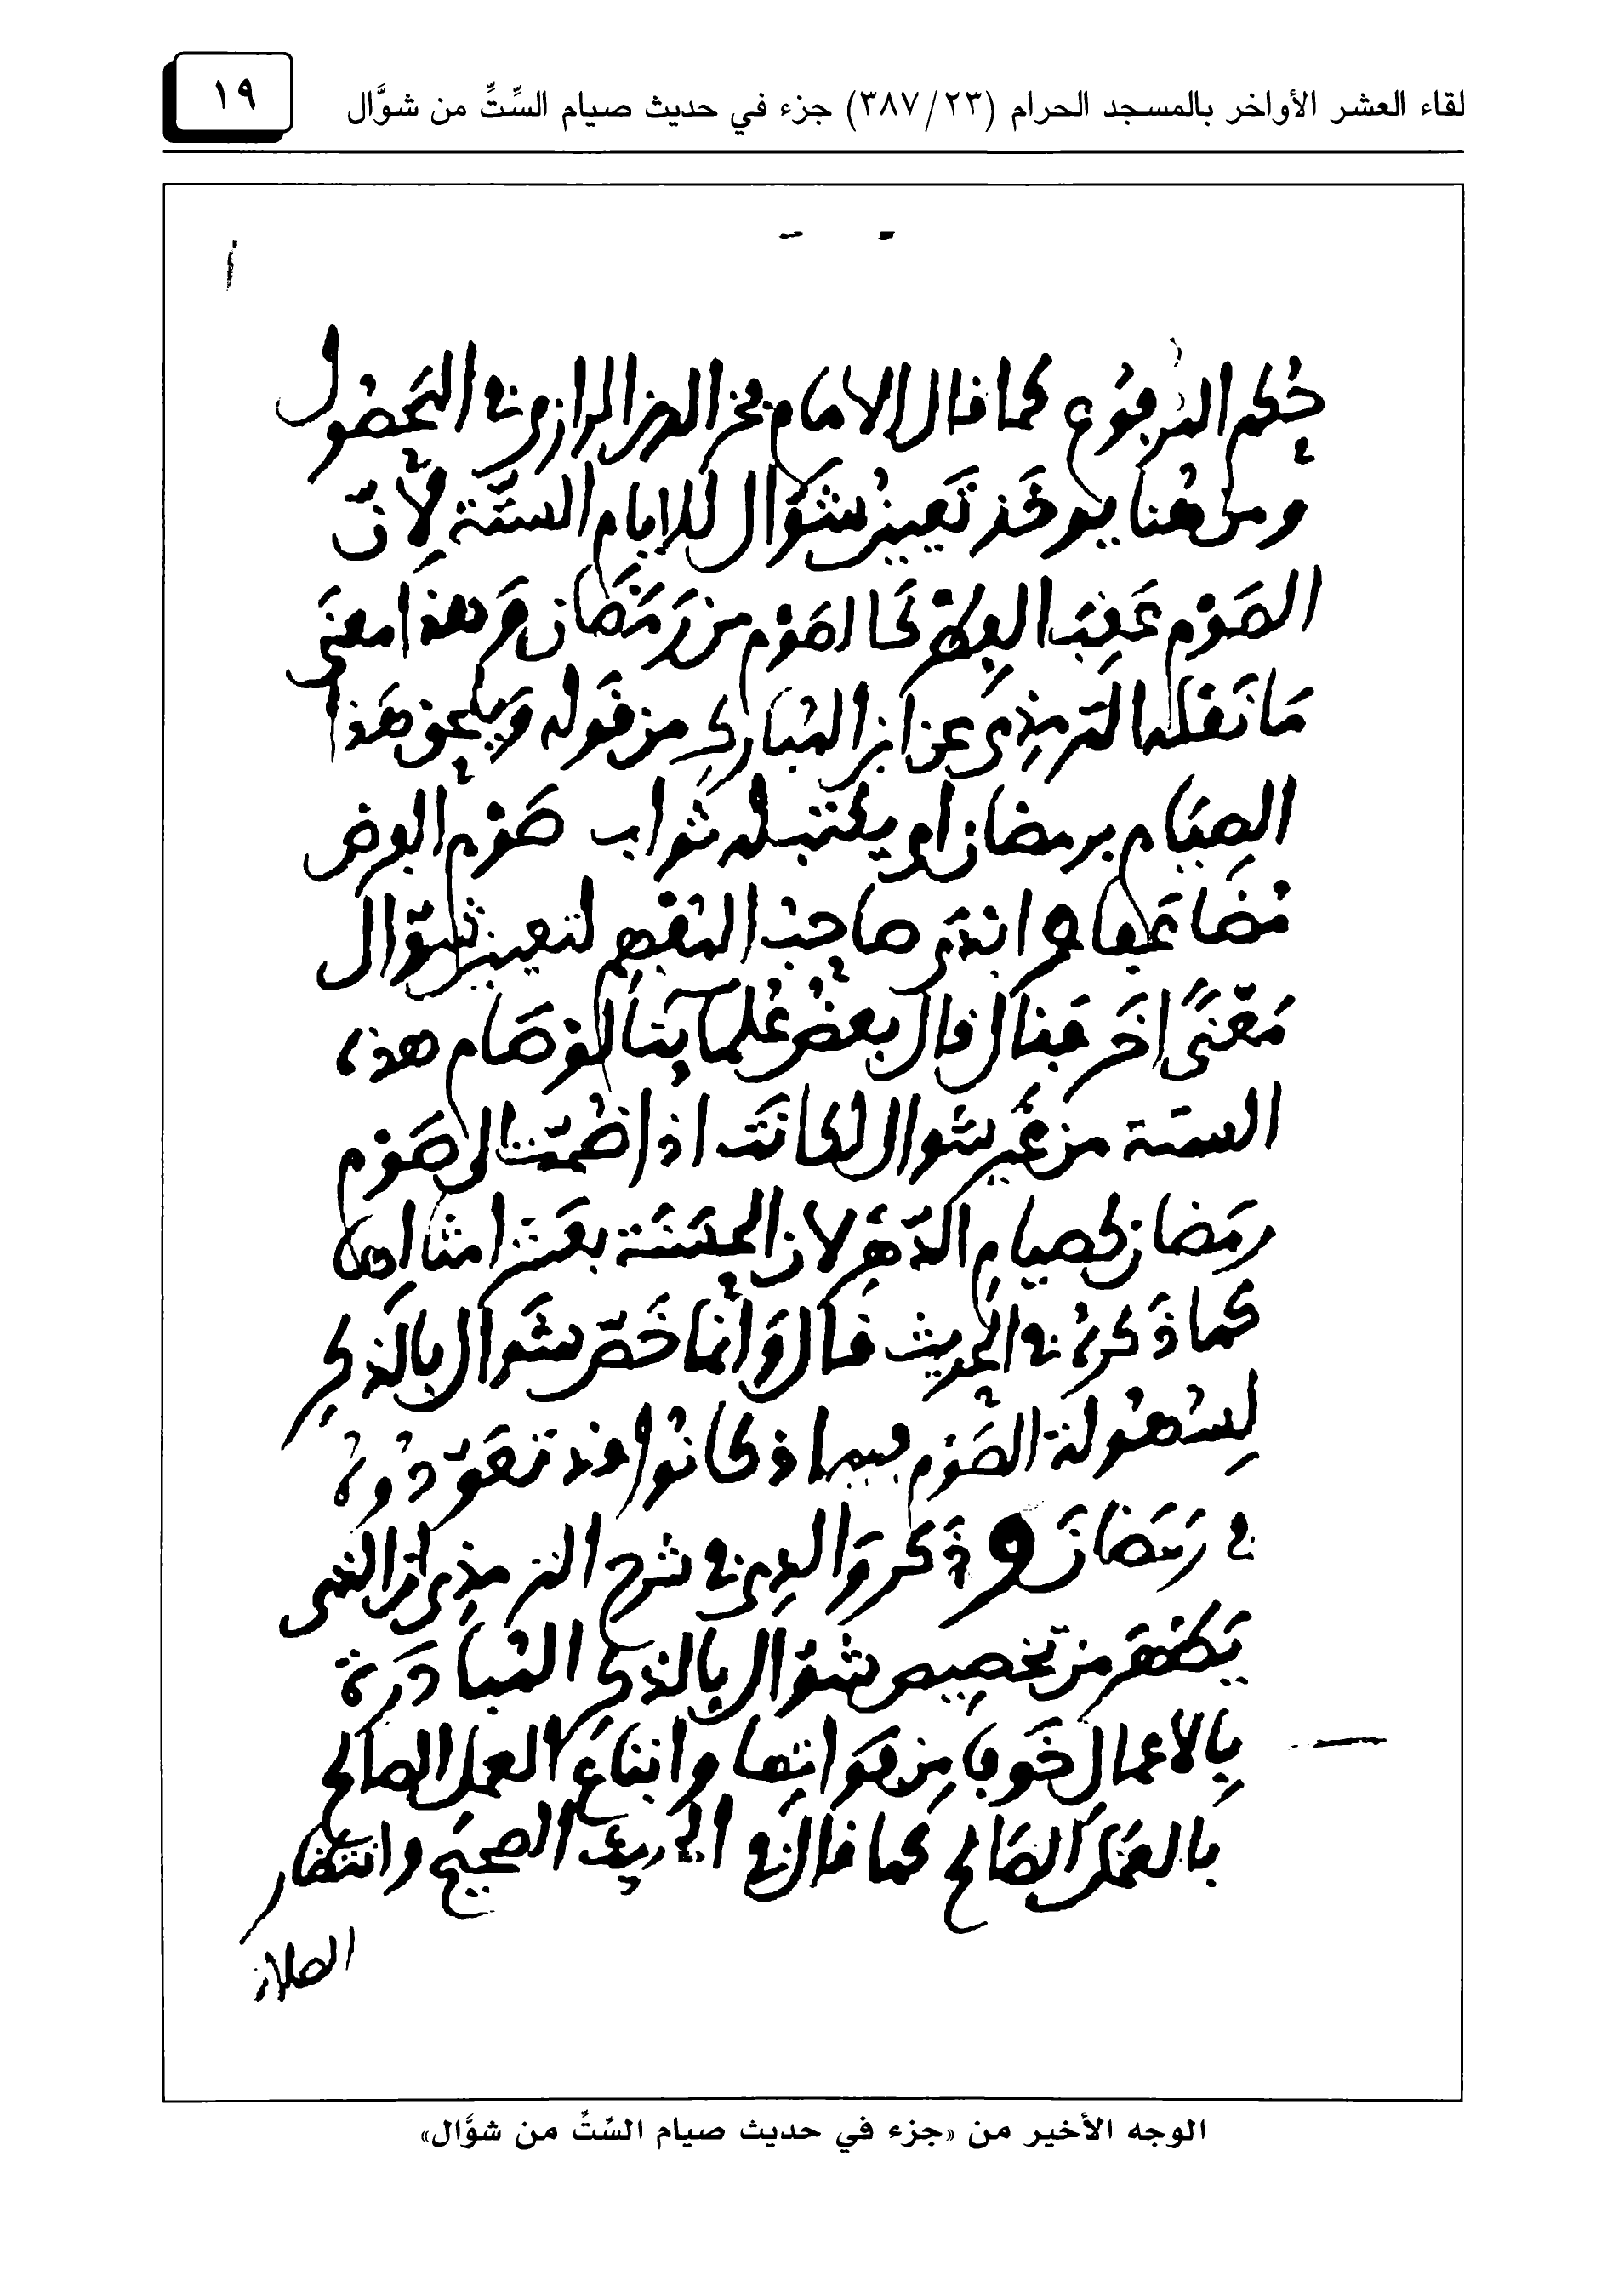 لقاء العشر الأواخر بالمسجد الحرام (٢٣/ ٣٨٧) جزء في حديث صيام السِّتِّ من شوَّال
١٩
أ
حُكم المرفوع كما قال الامام فخر الدين الرازي في المحصول
ومن هُنا يوخَذ تَعيين شَوَّال للايام الستّة لأنّ
الصَوْم عَقِبَ الفِطْرِ كالصَوْم من رَمَضَان وَهذا معنَى
مَا نَقلَه الترمذي عن ابن المُبارك من قوله وَيلحق هَذا
الصِيَام برمضان اي يكتب له ثواب صَوْم الفرض
مُضَاعَفا وابدَى صاحبُ المُفهِم لتعيين شَوّال
مَعْنًى اخَر فقال قال بعضُ عُلمآينا لَو صَام هذه
الستة من غَير شوال لكانَت اذا ضُمّت الى صَوْم
رمَضان كصيام الدّهْرِ لان الحَسَنَة بعَشر امثالها
كما ذَكرهُ في الحديث قال وَانّما خَصّ شَوال بالذكرِ
لِسُهُولة الصَوْم فيه اذ كانُوا قد تَعَوّدُوهُ
في رَمَضَانَ وذَكر وَالِدي في شرح الترمذِي انّ الذي
يَظهَر من تخصِيص شَوّال بالذكرِ المُبادَرة
بِالاعمال خَوفا مِن فَواتِها واتباعَ العمل الصالح
بالعَمَلِ الصَالحِ كما قال في الحديث الصحِيح وانتظار
الصلاة
الوجه الأخير من «جزء في حديث صيام السِّتِّ من شوَّال»